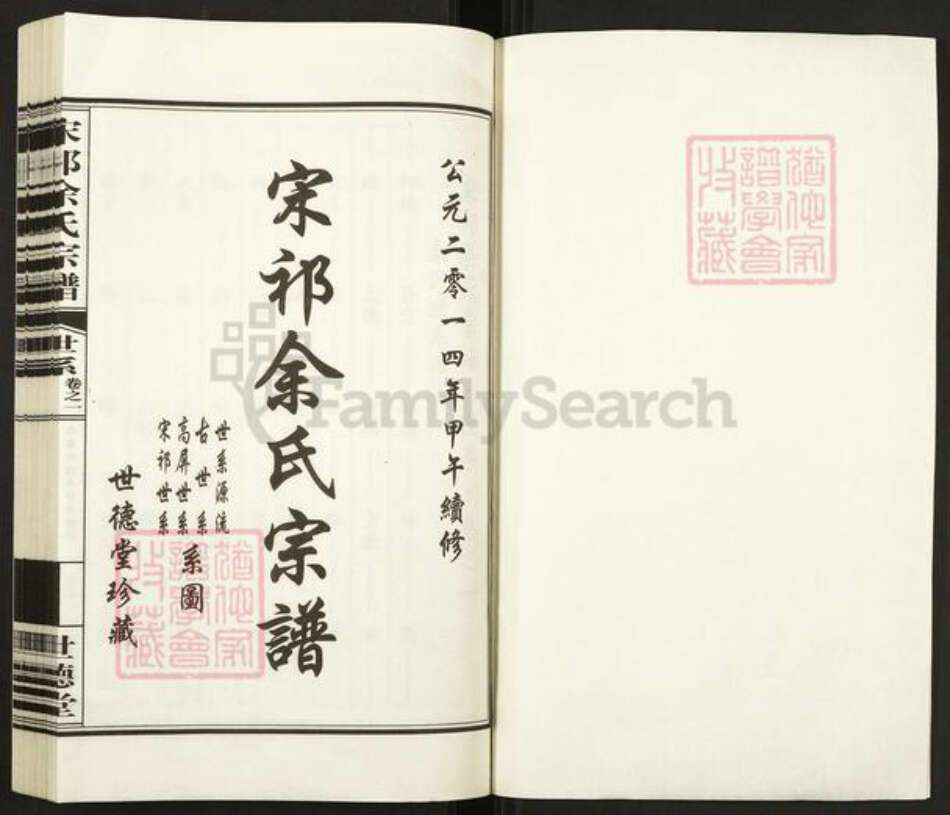 猶他家
譜學會
收藏
公元二零一四年甲午續修
宋祁余氏宗譜
世系源流
古世系
高屏世系
宋祁世系
系圖
世德堂珍藏
猶他家
譜學會
收藏
宋祁余氏宗譜
世系
卷之一
世德堂
FamilySearch